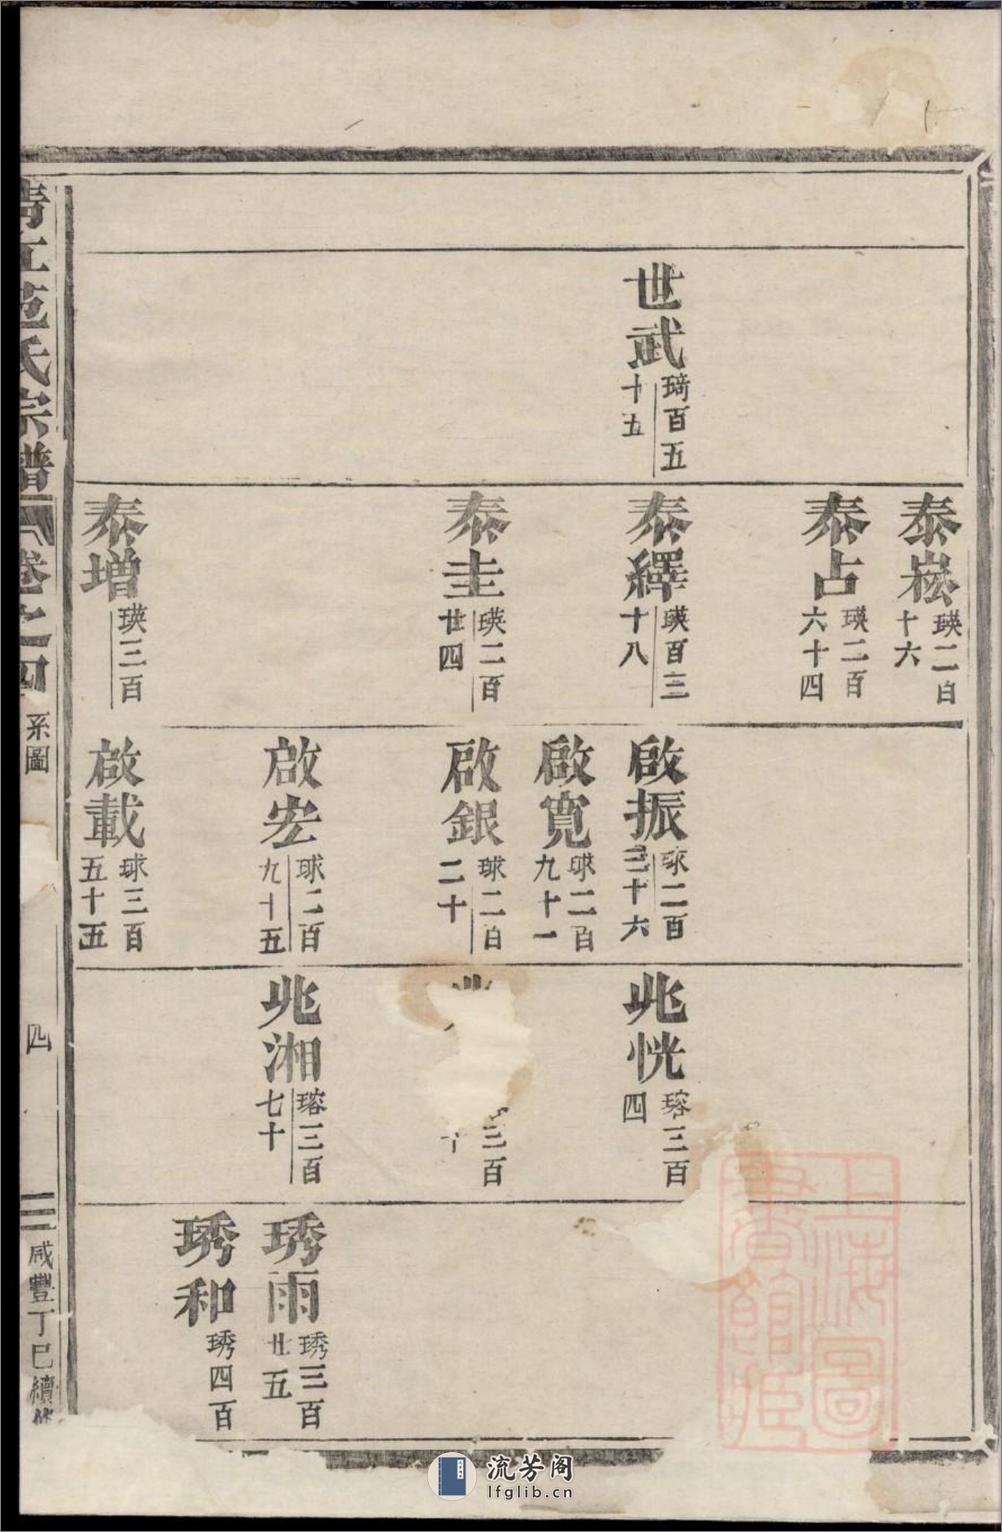 世武
琦百五
十五
泰崧
瑛二百
十六
泰占
瑛二百
六十四
泰繹
瑛百三
十八
泰圭
瑛二百
廿四
泰增
瑛三百
啟振
球二百
三十六
啟寬
球二百
九十一
啟銀
球二百
二十
啟宏
球二百
九十五
啟載
球三百
五十五
兆恍
瑢三百
四
三百
十
兆湘
瑢三百
七十
琇雨
琇三百
廿五
琇和
琇四百
范氏宗譜
卷之四
系圖
四
咸豐丁巳續修
上海圖
書館藏
流芳阁
lfglib.cn